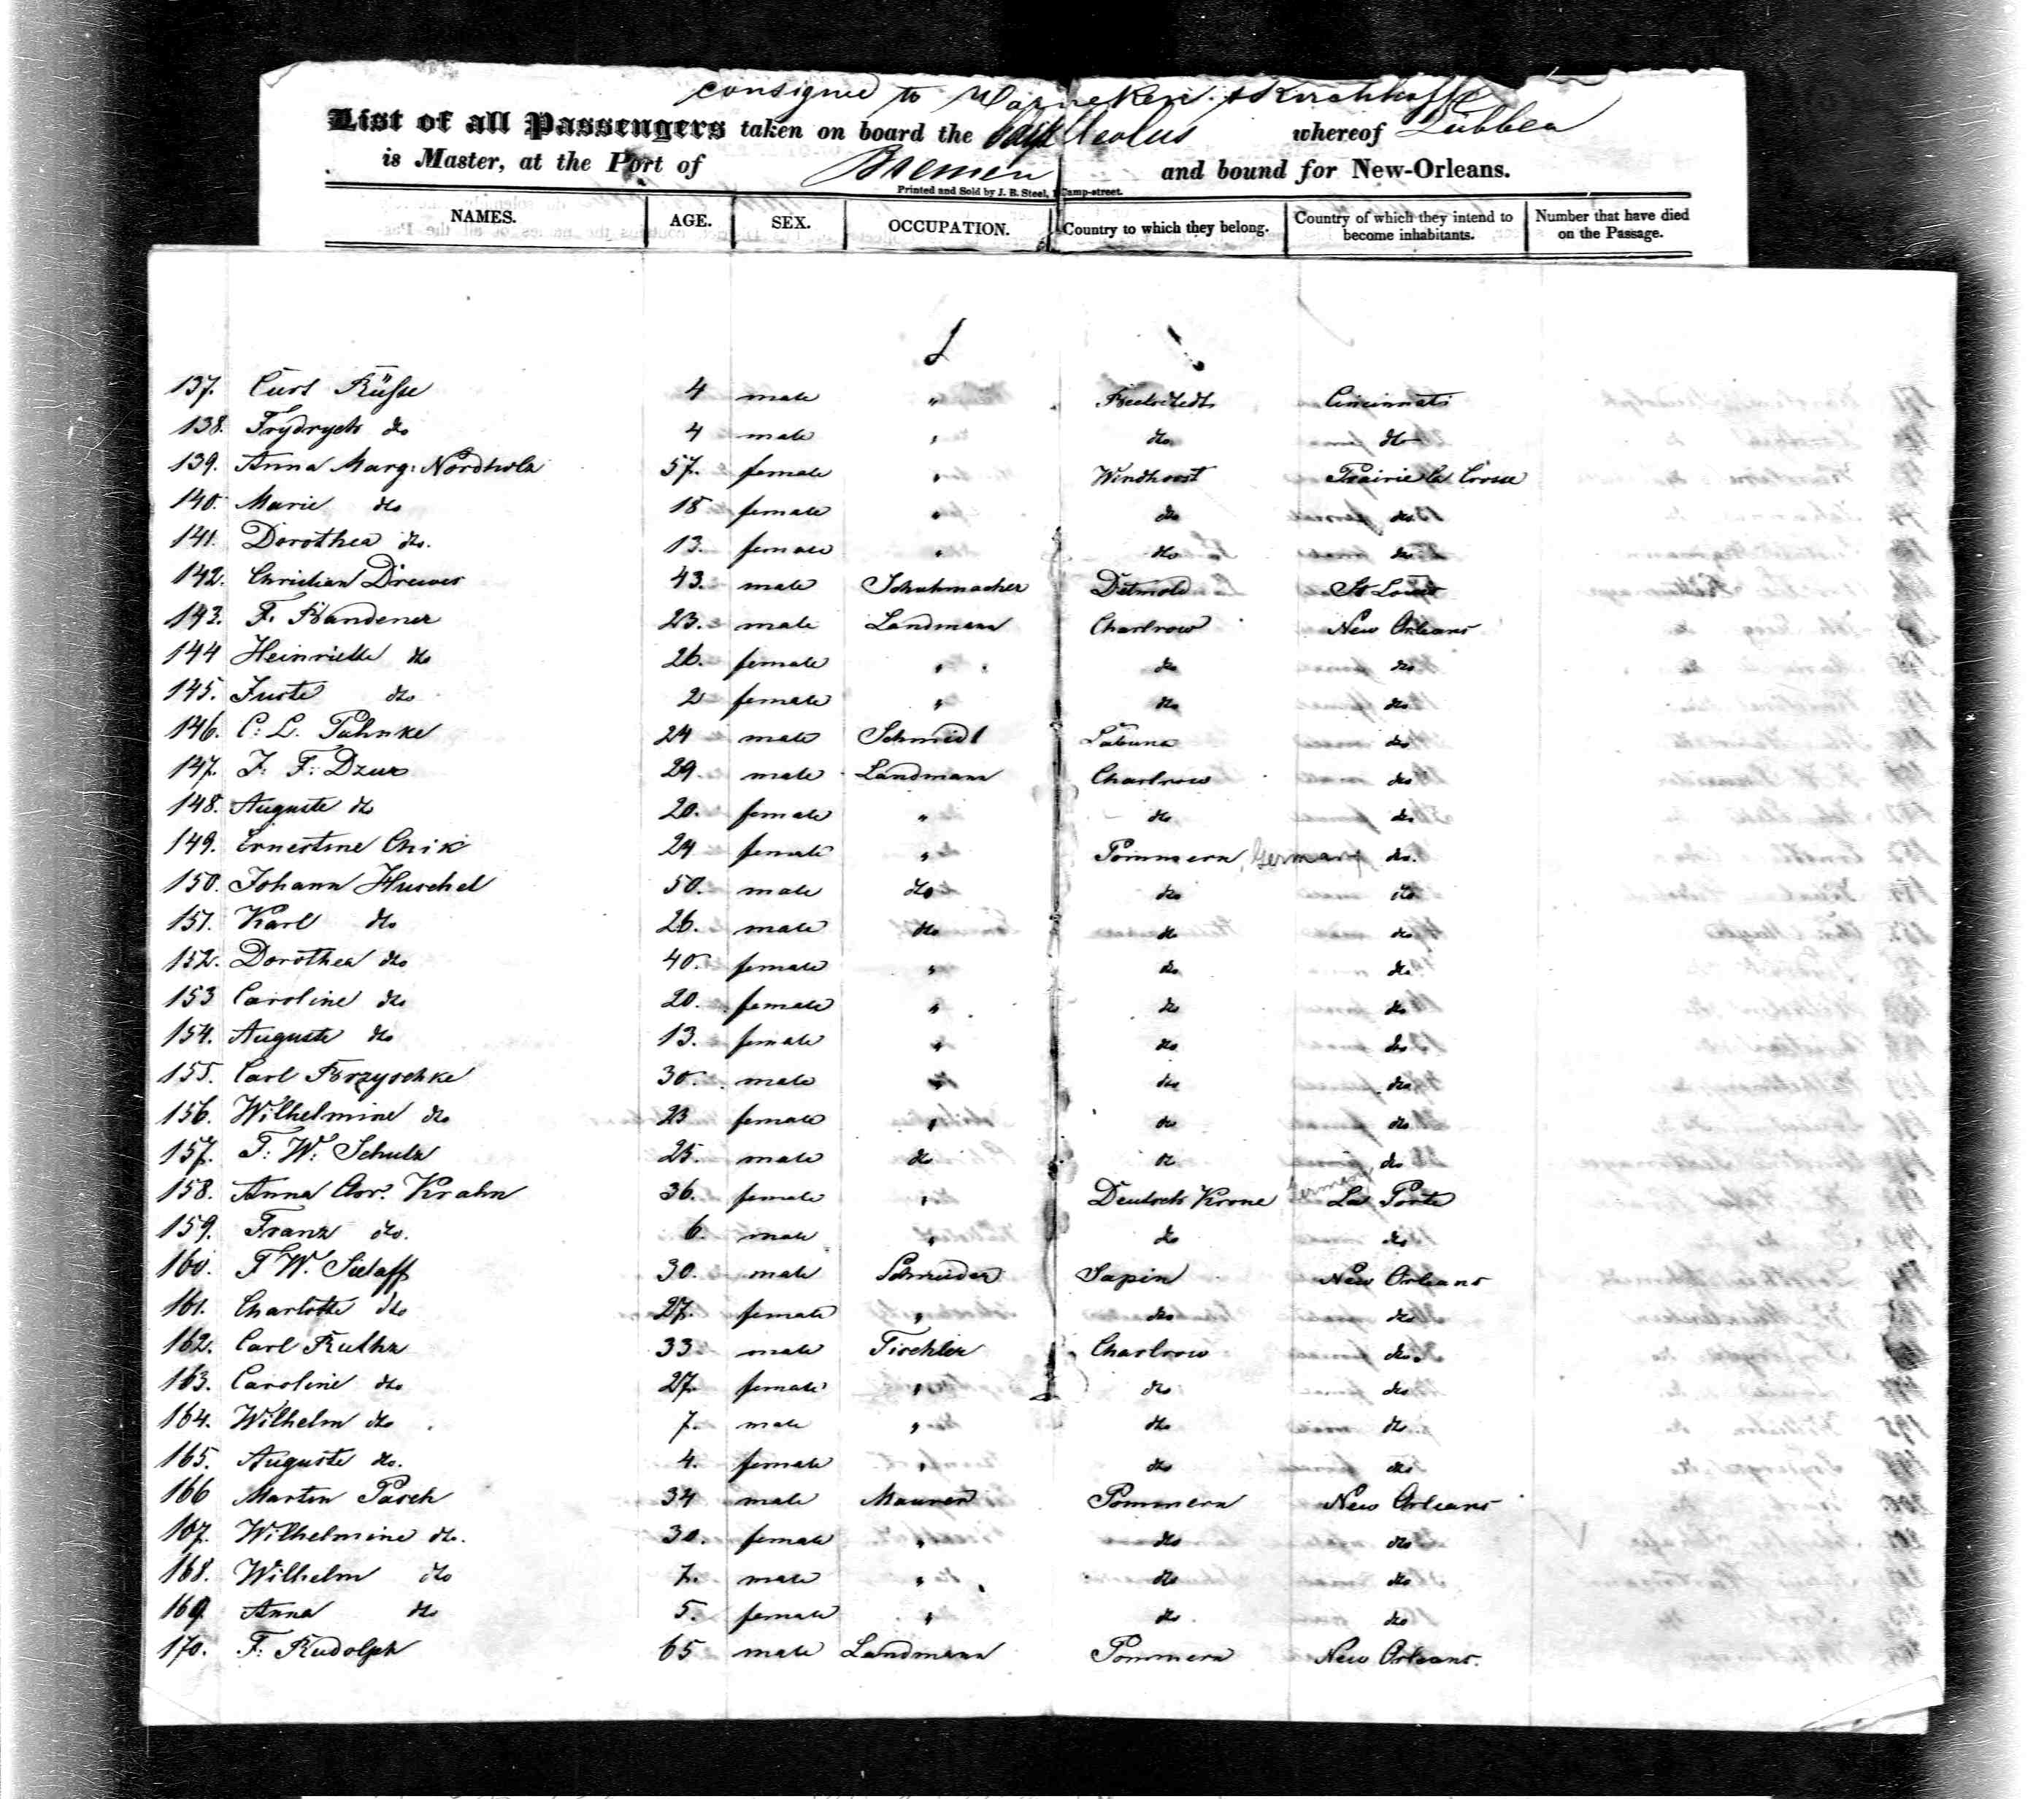 consigned to Warneken & Kirchhoff
List of all Passengers taken on board the Ship Aeolus whereof Lübben
is Master, at the Port of Bremen and bound for New-Orleans.
Printed and Sold by J. B. Steel, Camp-street.
NAMES. AGE. SEX. OCCUPATION. Country to which they belong. Country of which they intend to become inhabitants. Number that have died on the Passage.
137. Curt Rüsse 4 male " Cincinnati
138. Frydrych do 4 male " do do
139. Anna Marg: Nordholz 57. female " Windhorst Prairie la Crosse
140. Marie do 18 female " do do
141. Dorothea do. 13. female " do do
142. Christian Drewes 43. male Schuhmacher Detmold St Louis
143. F. Bandener 23. male Landmann Charlrow New Orleans
144 Heinriette do 26. female " do do
145. Juste do 2 female " do do
146. C: L. Pahnke 24 male Schmidt Labuna do
147. F: F: Dzur 29. male Landmann Charlrow do
148. Auguste do 20. female " do do
149. Ernestine Chik 24 female " Pommern, Germany do.
150. Johann Huschel 50. male do do do
151. Karl do 26. male do do do
152. Dorothea do 40. female " do do
153 Caroline do 20. female " do do
154. Auguste do 13. female " do do
155. Carl Brzyschke 30. male " do do
156. Wilhelmine do 23 female " do do
157. F: W: Schulz 25. male do do do
158. Anna Krahn 36. female " Deutsch Krone Germany La Porte
159. Franz do. 6. male " do do
160. F W. Sielaff 30. male Schneider Sapin New Orleans
161. Charlotte do 27. female " do do
162. Carl Ruthz 33 male Tischler Charlrow do
163. Caroline do 27. female " do do
164. Wilhelm do 7. male " do do
165. Auguste do. 4. female " do do
166 Martin Pasch 34 male Maurer Pommern New Orleans
167. Wilhelmine do. 30. female " do do
168. Wilhelm do 7. male " do do
169. Anna do 5. female " do. do
170. F: Rudolph 65 male Landmann Pommern New Orleans.